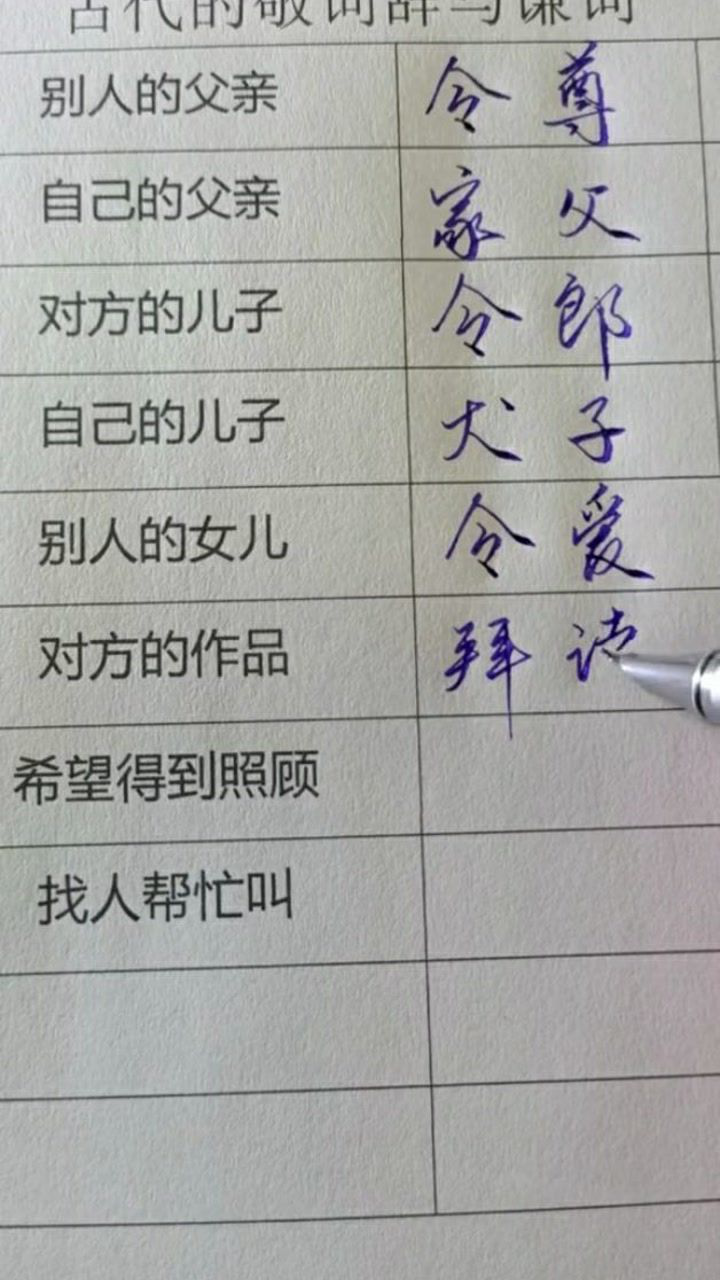 古代的敬词辞与谦词
别人的父亲 令尊
自己的父亲 家父
对方的儿子 令郎
自己的儿子 犬子
别人的女儿 令爱
对方的作品 拜读
希望得到照顾
找人帮忙叫